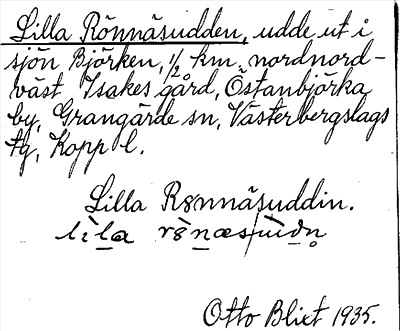 Lilla Rönnäsudden, udde ut i
sjön Björken, 1/2 km. nordnord-
väst Isakes gård, Östanbjörka
by, Grangärde sn, Västerbergslags
tg, Kopp l.
Lilla Rønnäsuddin.
Otto Blixt 1935.